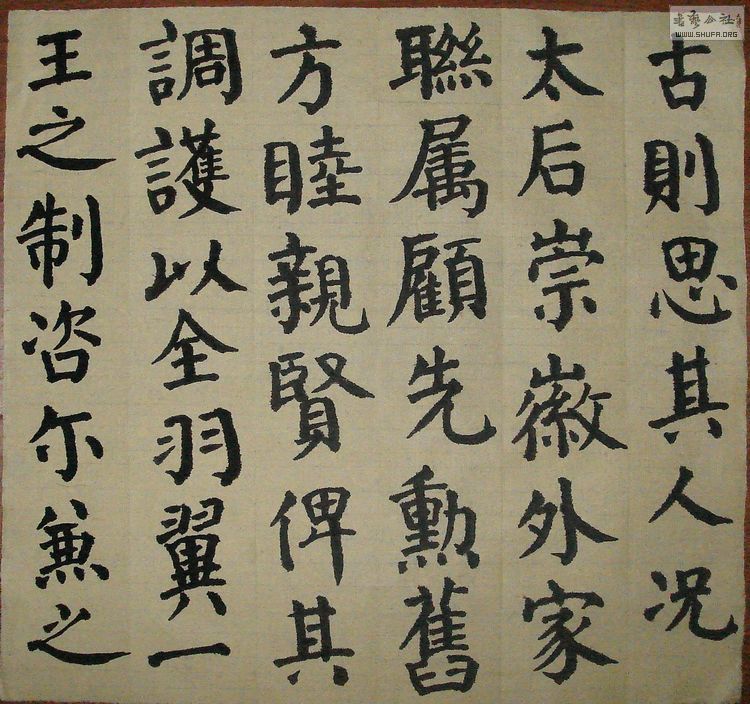 古則思其人况
太后崇徽外家
聯属顧先勳舊
方睦親賢俾其
調護以全羽翼一
王之制咨尔兼之
公社
WWW.SHUFA.ORG